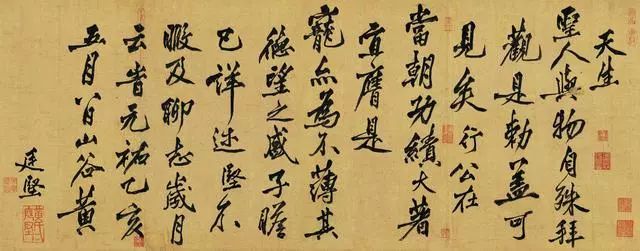 天生
聖人與物自殊拜
觀是勅蓋可
見矣行公在
當朝功績大著
宜膺是
寵亦為不薄其
德望之盛子瞻
已詳述堅不
暇及聊志歲月
云旹元祐乙亥
五月八日山谷黃
庭堅